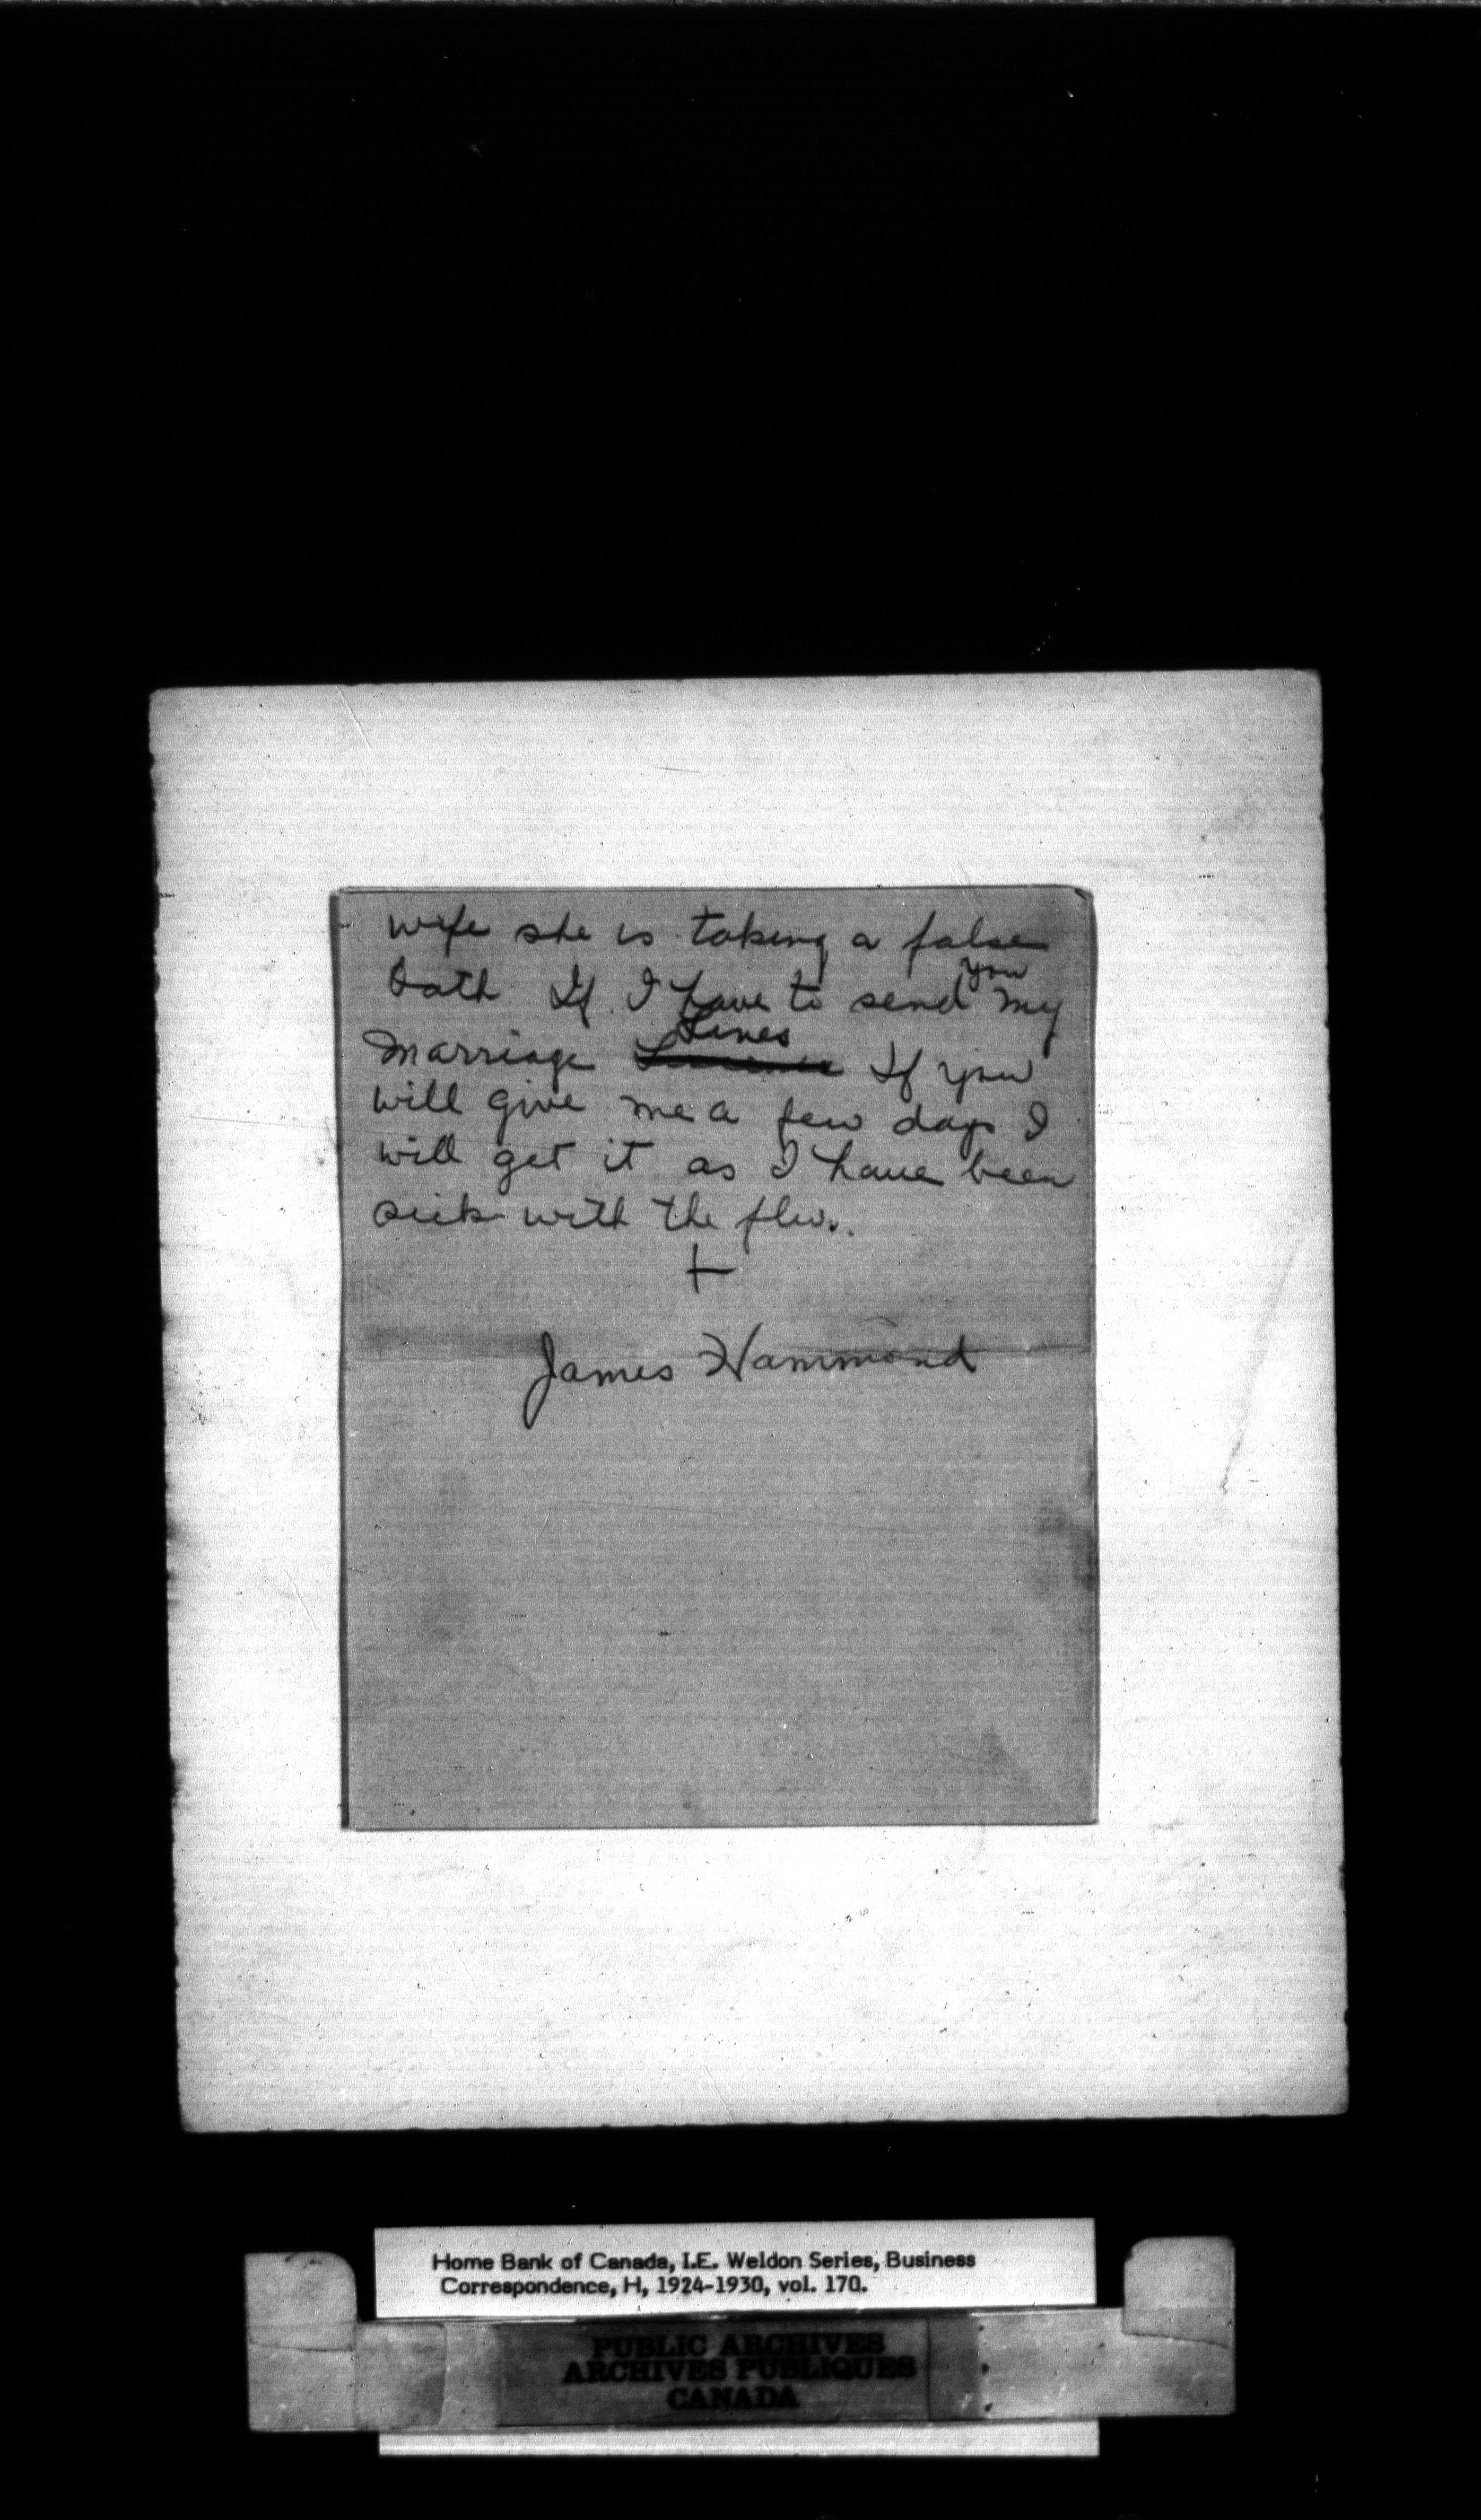 wife she is taking a false
Oath If I have to send you my
Marriage Lines If you
will give me a few days I
will get it as I have been
sick with the flu.
+
James Hammond
Home Bank of Canada, I.E. Weldon Series, Business
Correspondence, H, 1924-1930, vol. 170.
PUBLIC ARCHIVES
ARCHIVES PUBLIQUES
CANADA